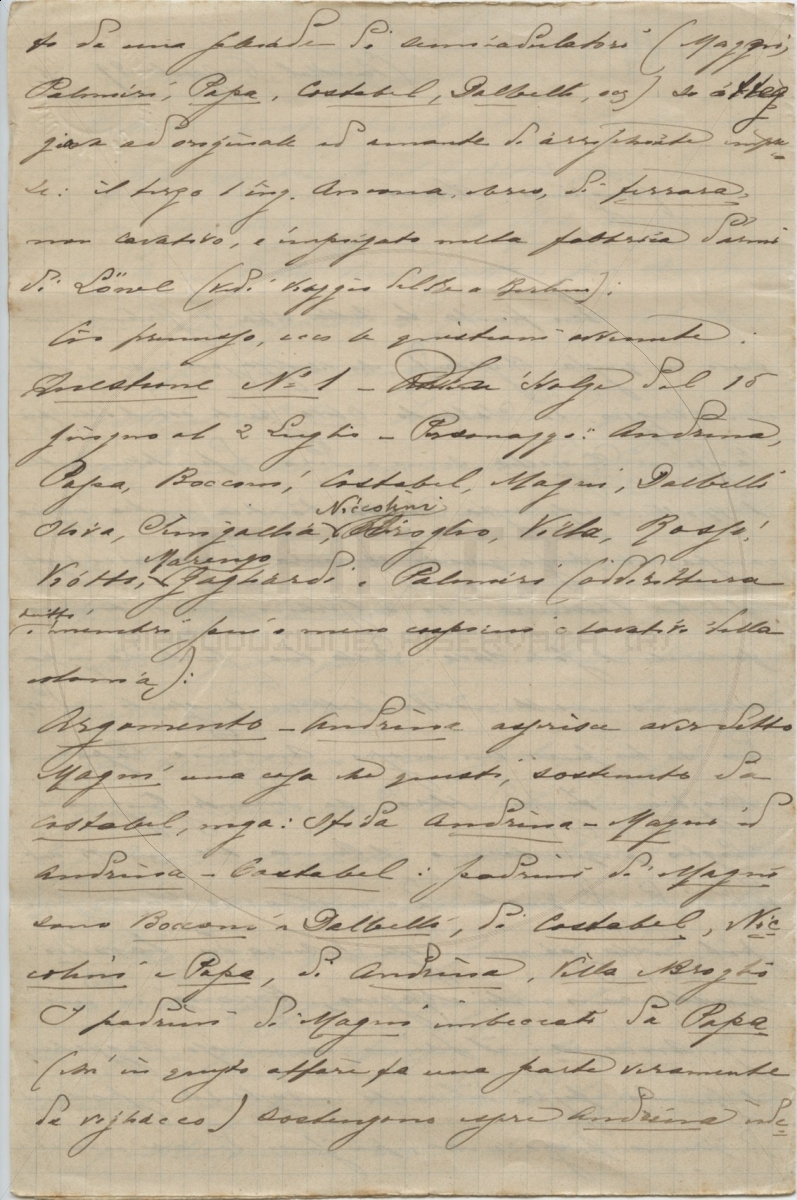 to da una falange di semiadulatori (Magni,
Palmiri, Papa, Costabel, Dalbelli, ecc) si atteg
gia ad originale ed amante di
il terzo l'ing. Ancona, ebreo, di Ferrara,
non cavativo, è impiegato nella fabbrica d'armi
di Lönel (vedi viaggio
Ciò premesso, ecco le questioni avvenute:
Questione No 1 - svolge dal 15
giugno al 2 Luglio - Personaggi: Andrina,
Papa, Bocconi, Costabel, Magni, Dalbelli
Oliva, Sinigallia, Niccolini Broglio, Villa, Rossi,
Viotti, Marengo Gagliardi e Palmiri (addirittura
tutti i membri più o meno cospicui e cavativi della
colonia):
Argomento - Andrina asserisce aver detto
Magni una cosa che questi, sostenuto da
Costabel, nega: Sfida Andrina - Magni ed
Andrina - Costabel: padrini di Magni
sono Bocconi e Dalbelli, di Costabel, Nic
colini e Papa, di Andrina, Villa e Broglio
I padrini di Magni imbeccati da Papa
(che in questo affare fa una parte veramente
da vigliacco) sostengono essere Andrina inde